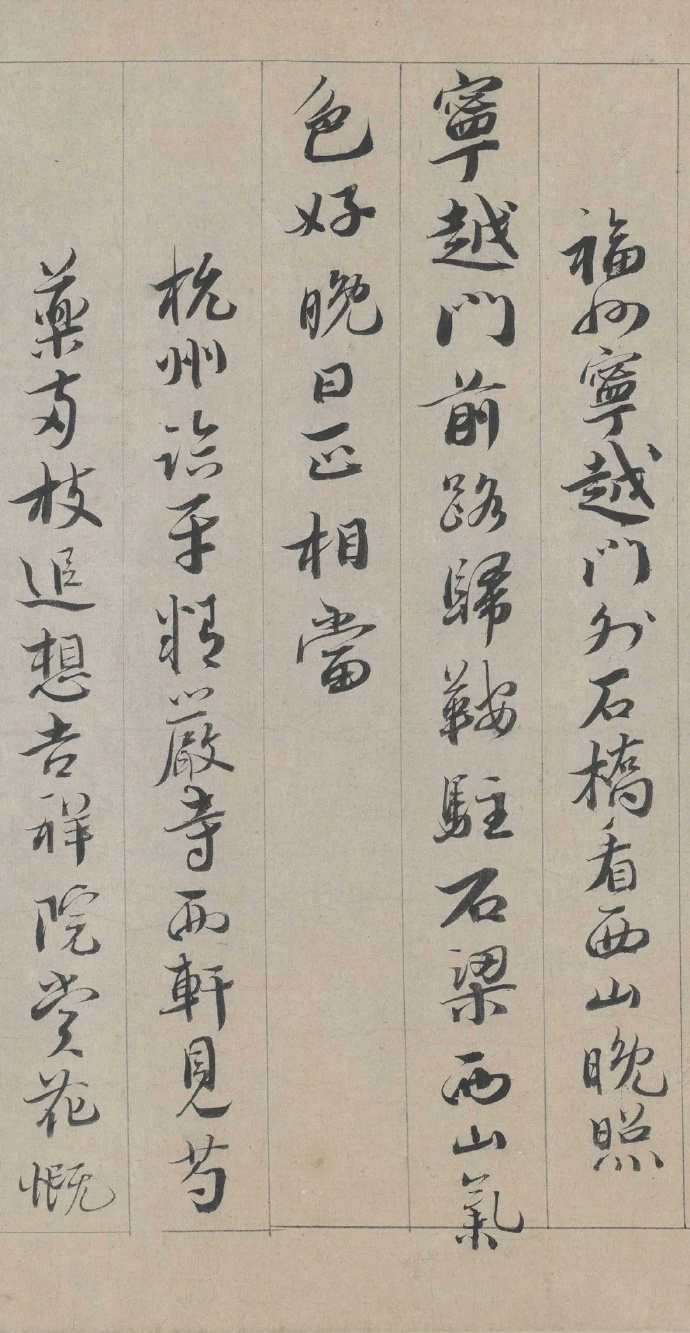 福州寧越門外石橋看西山晚照
寧越門前路歸鞍駐石梁西山氣
色好晚日正相當
杭州臨平精嚴寺西軒見芍
藥兩枝追想吉祥院賞花慨